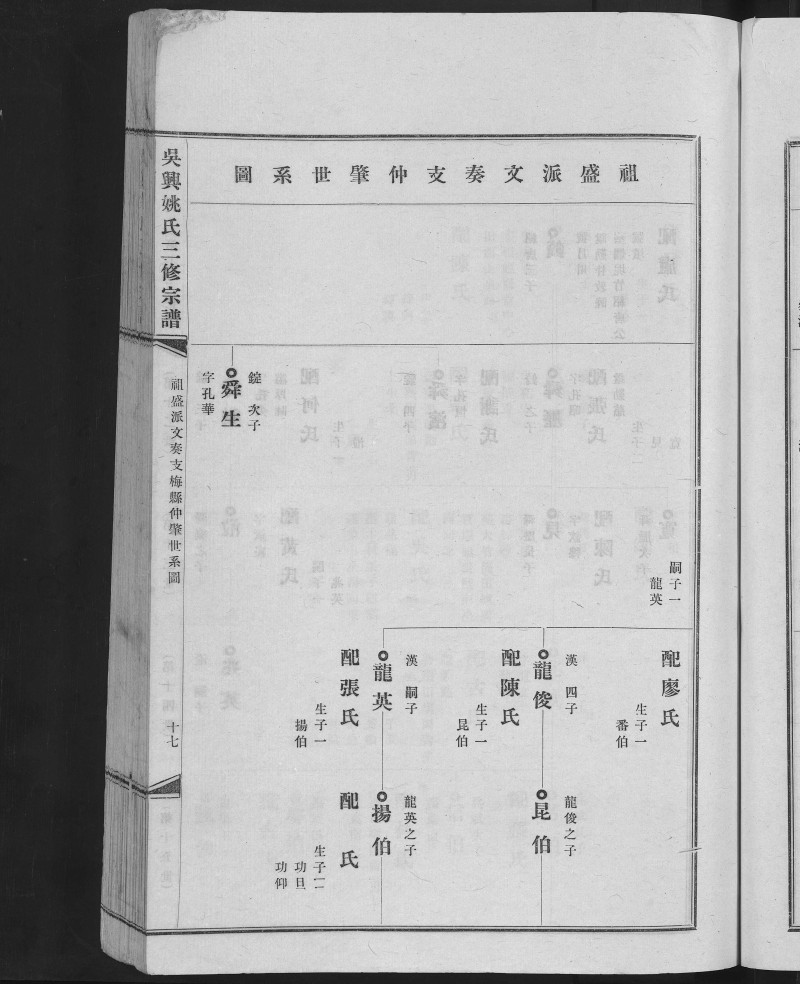 祖盛派文奏支仲肇世系圖
嗣子一
龍英
配廖氏
生子一
番伯
漢 四子
龍俊
配陳氏
生子一
昆伯
龍俊之子
昆伯
漢 嗣子
龍英
配張氏
生子一
揚伯
龍英之子
揚伯
配 氏
生子二
功旦
功仰
錠 次子
舜生
字孔華
吳興姚氏三修宗譜
祖盛派文奏支梅縣仲肇世系圖
十七